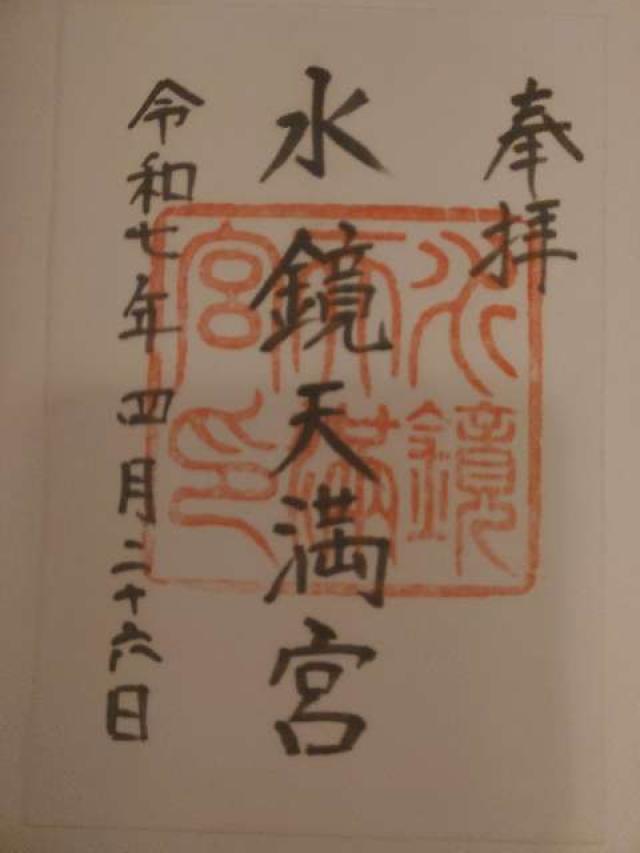 奉拝
水鏡天満宮
水鏡
天満
宮印
令和七年四月二十六日